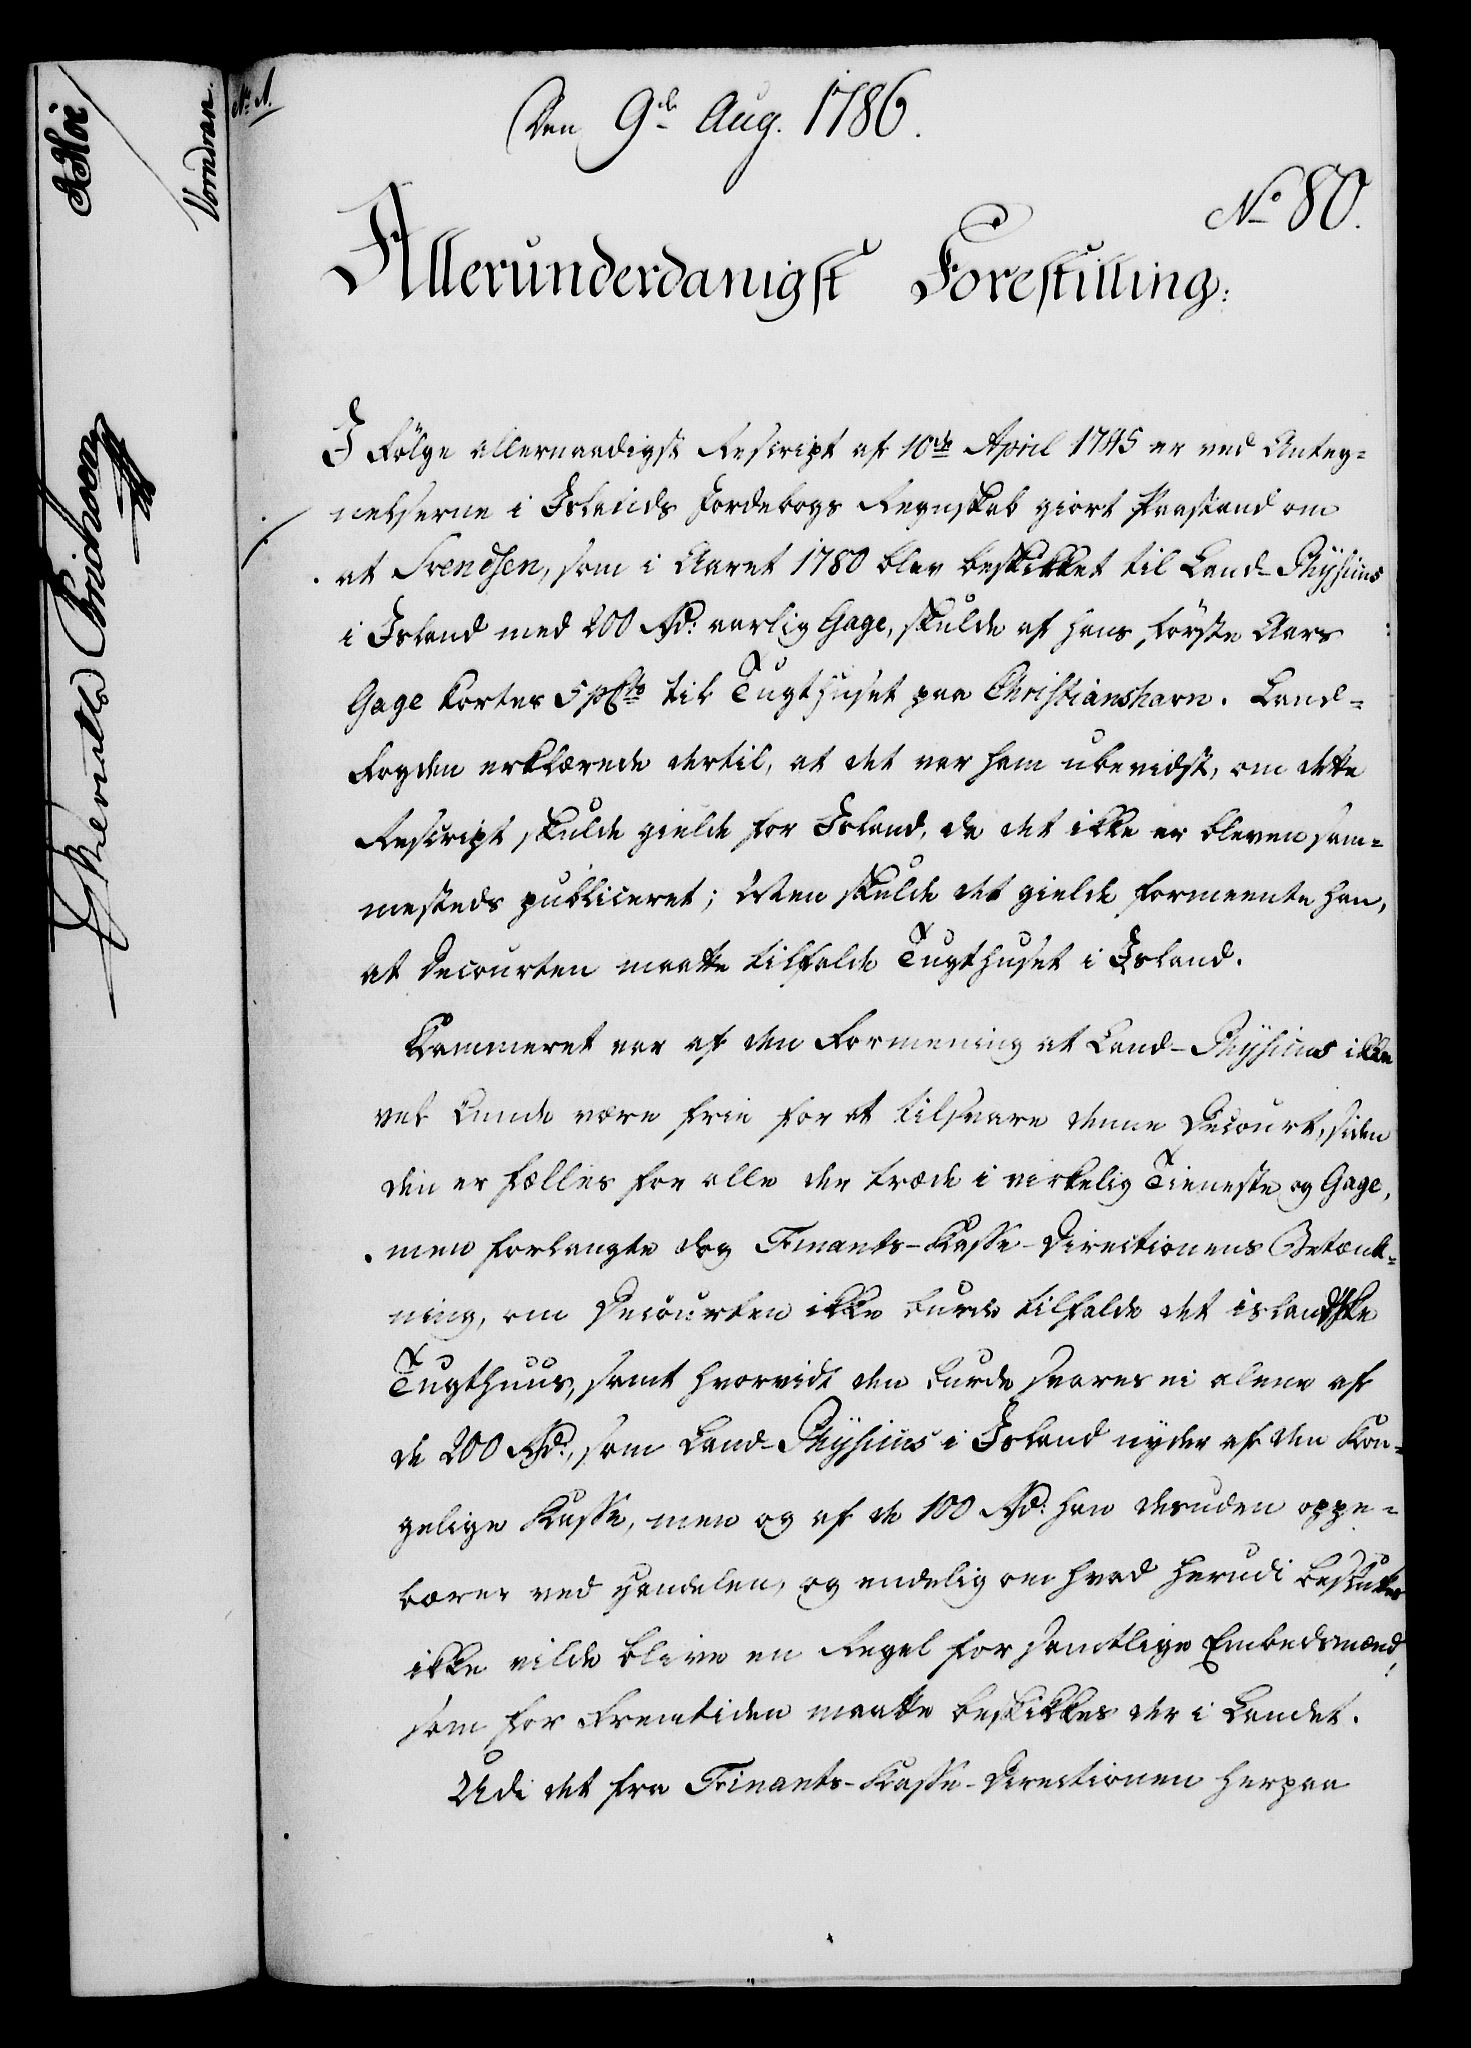 Den 9de Aug. 1786.
No 80.
Allerunderdanigst Forestilling:
I Følge allernaadigst Rescript af 10de April 1745 er ved Anteg-
nelserne i Islands Jordebogs Regnskab giort Paastand om
at Svendsen, som i Aaret 1780 blev beskikket til Land-Physicus
i Island med 200 Rd. aarlig Gage, skulde af hans første Aars
Gage kortes 5 pCto til Tugthuset paa Christianshavn. Land-
fogden erklærede dertil, at det var ham ubevidst, om dette
Rescript skulde gielde for Island, da det ikke er bleven sam-
mesteds publiceret; Men skulde det gielde formeente han,
at Decourten maatte tilfalde Tugthuset i Island.
Kammeret var af den Formening at Land-Physicus ikke
vel kunde være frie for at tilsvare denne Decourt, siden
den er fælles for alle der træde i virkelig Tieneste og Gage,
men forlangte dog Finants-Kasse-Directionens Betænk-
ning, om Decourten ikke burde tilfalde det islandske
Tugthuus, samt hvorvidt den burde svares ei alene af
de 200 Rd., som Land-Physicus i Island nyder af den Kon-
gelige Kasse, men og af de 100 Rd. han desuden oppe-
bærer ved Handelen, og endelig om hvad herudi besluttes
ikke vilde blive en Regel for samtlige Embedsmænd,
som for Fremtiden maatte beskikkes der i Landet.
Udi det fra Finants-Kasse-Directionen herpaa